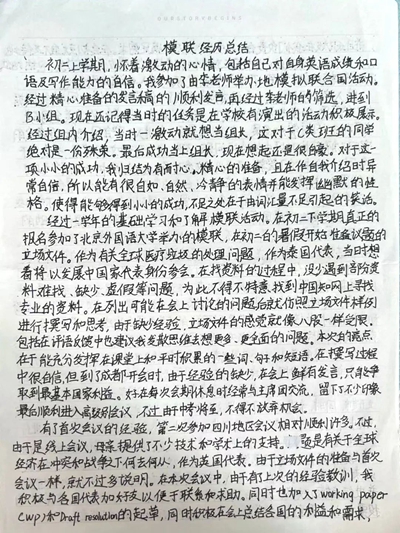 模联经历总结
初二上学期，怀着激动的心情，包括自己对自身英语成绩和口
语及写作能力的自信。我参加了由李老师举办地模拟联合国活动。
经过精心准备的发言稿的顺利发言，再经过李老师的筛选，进到
B小组。现在还记得当时的任务是在学校有演出的活动积极展示。
经过组内介绍，当时一激动就想当组长，这对于C类班的同学
绝对是一份殊荣。最后成功当上组长，现在想起还是很自豪。对于这一
项小小的成功，我归结为有耐心。精心的准备，且在作自我介绍时异
常自信，所以能有很自如、自然、冷静的表情并能发挥幽默的性
格。使得能够得到小小的成功，不足之处在于由词汇量不足引起的笑话。
经过一学年的基础学习和了解模联活动。在初二下学期真正的
报名参加了北京外国语大学举办的模联，在初一的暑假开始准备议题的
立场文件。作为有关全球医疗垃圾的处理问题，作为泰国代表，当时想
着将以发展中国家代表身份参会。在找资料的过程中，没少遇到部分资
料难找、缺少、虚假等问题，为此不得不特意找到中国知网上寻找
专业的资料。在列出可能在会上讨论的问题后就仿照立场文件样例
进行撰写和思考，由于缺少经验，立场文件的感觉就像八股一样受限。
包括在评语反馈中也建议我发散思维去想更多、更全面的问题。本次的亮点
在于能充分发挥在课堂上和平时积累的一些词、句子和短语。在撰写过程
中很自信，但到了成都开会时，由于经验的缺少，在会上鲜有发言，只能争
取到最基本国家利益。好在每次会期休息时经常与主席团交流，留下了不少印象
最后顺利进入高级别会议，不过由于中考将至，不得不放弃机会。
有了首次会议的经验，第二次参加四川地区会议相对顺利许多。不过，
由于是线上会议，母亲提供了不少技术和学术上的支持。题是有关于全球
经济在冲突和战争之下何去何从，作为英国代表。由于立场文件的准备与首次
会议一样，就不过多说明。在本次会议中，由于有了上次的经验教训，我
积极与各国代表加好友以便于联系和求助。同时也加入了working paper
(WP)和Draft resolution的起草，同时积极在会上总结各国的利益和需求，